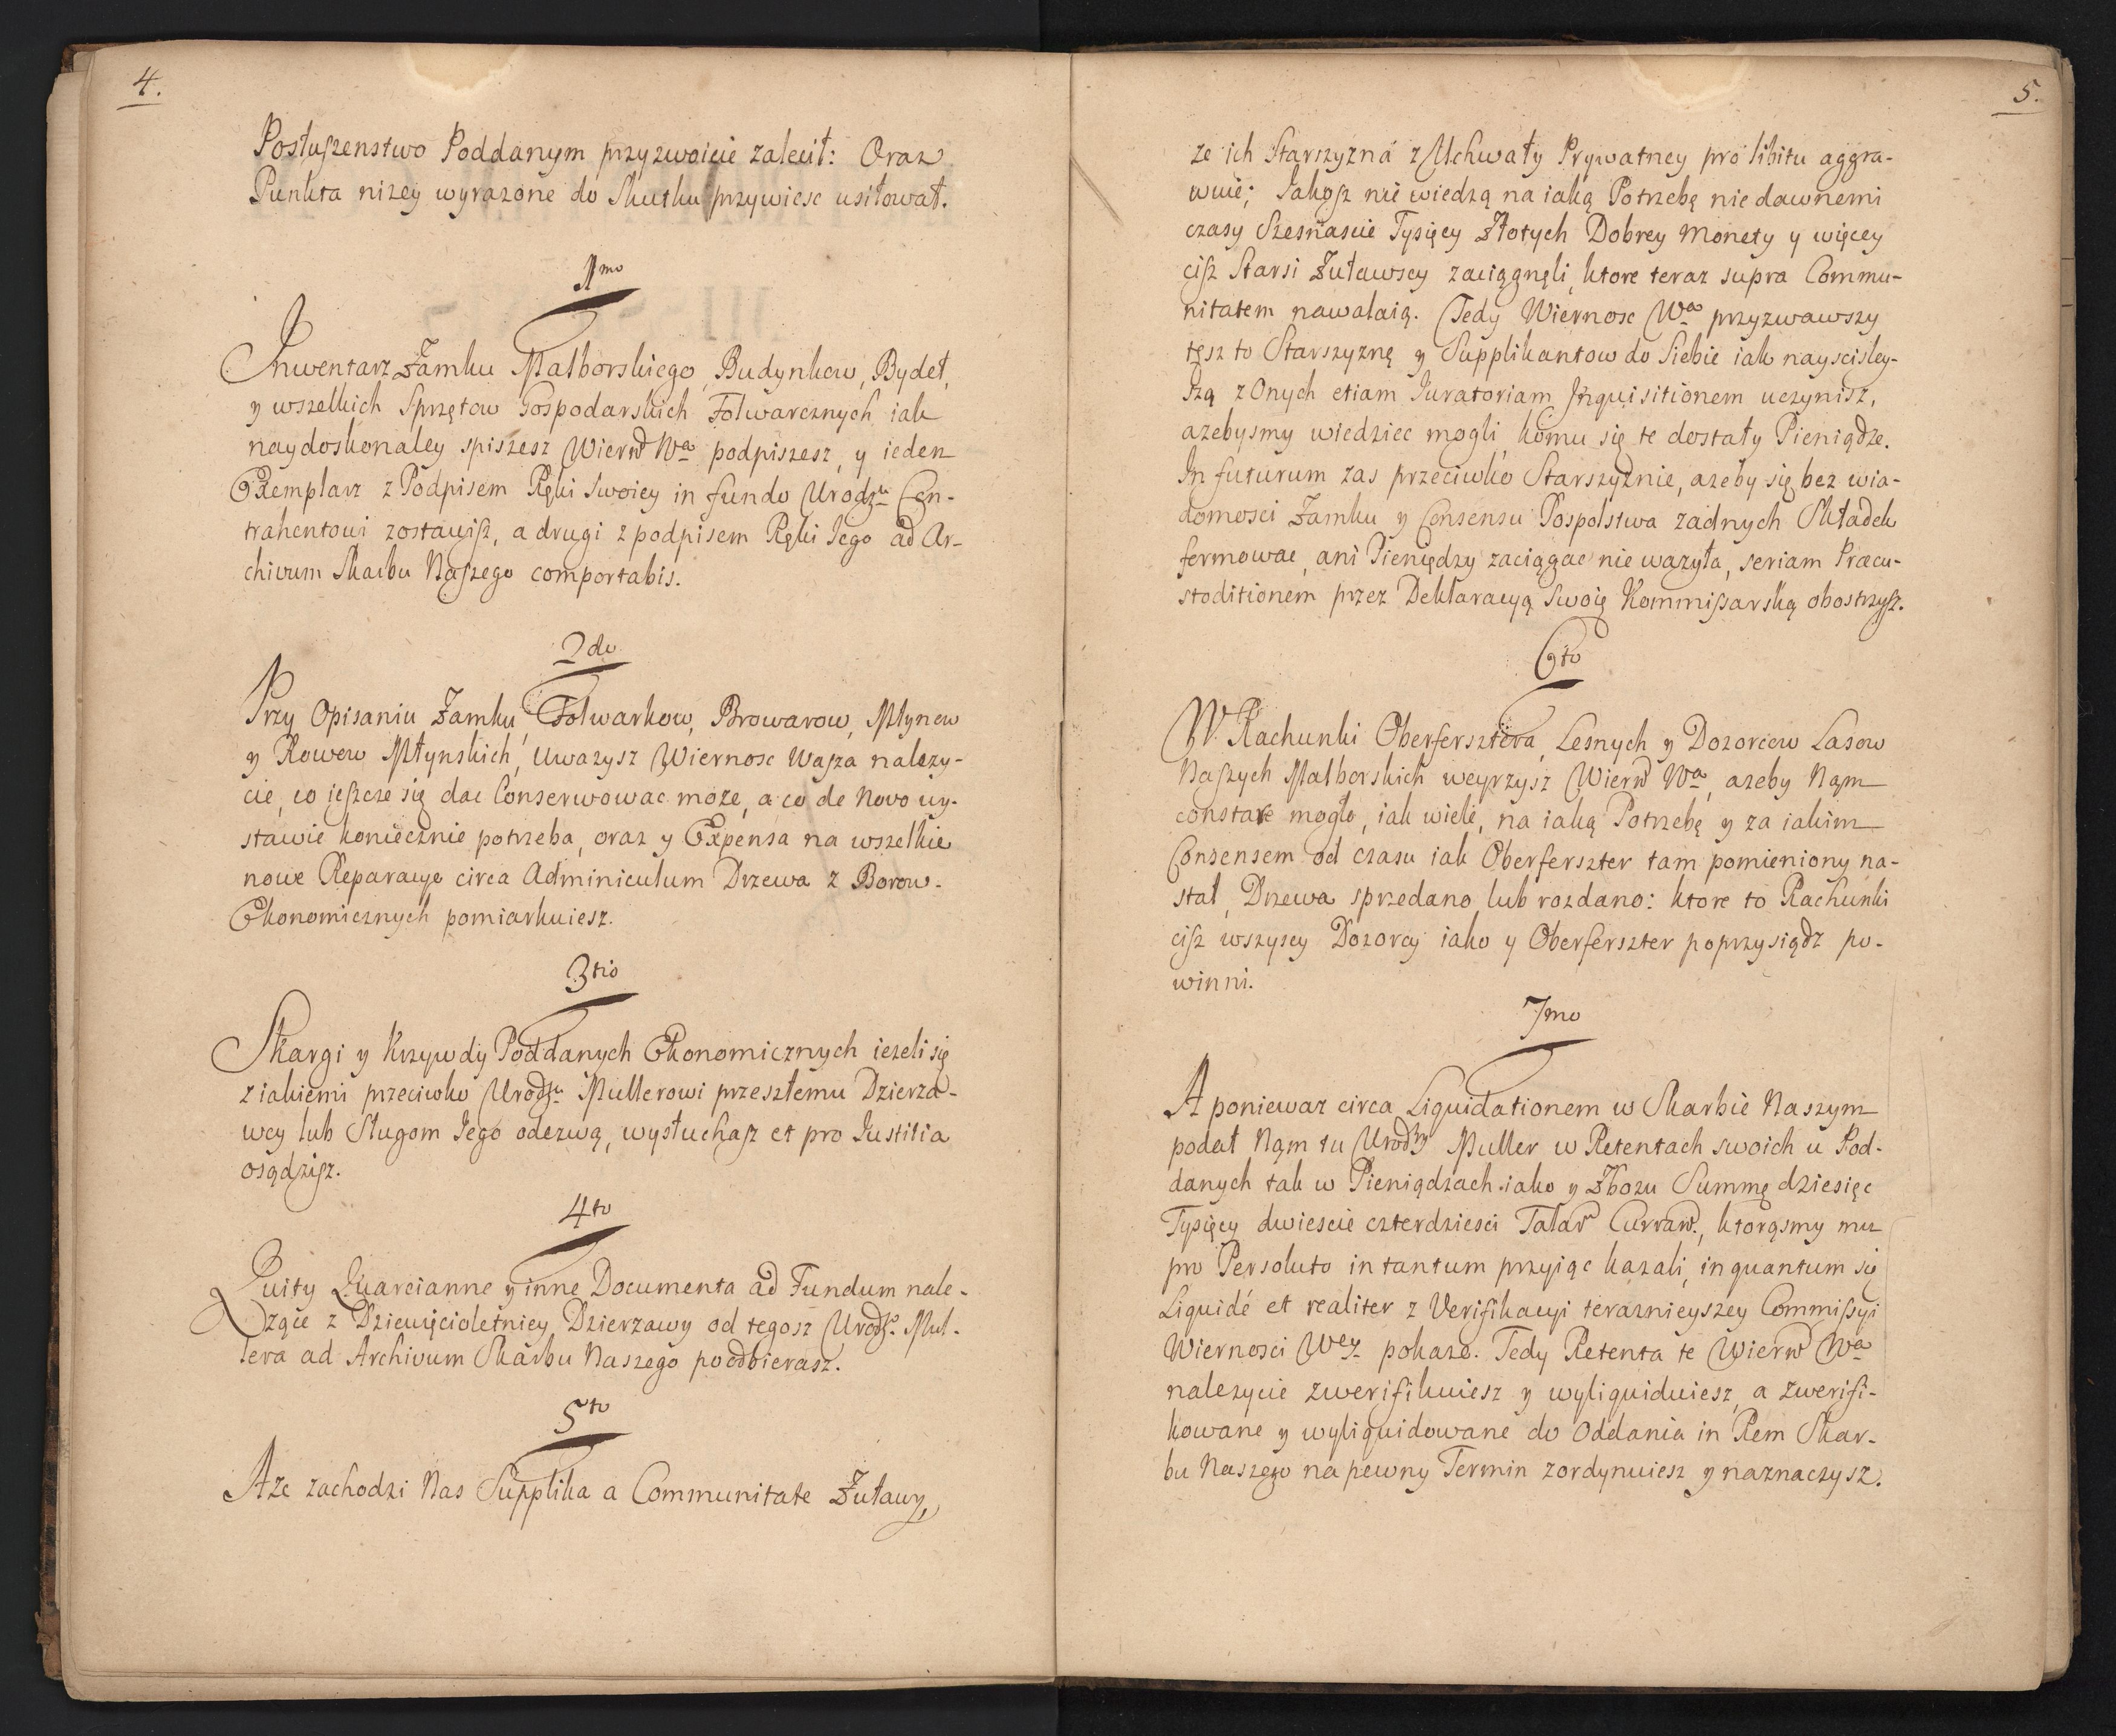 4.
Posłuszenstwo Poddanym przyzwoicie zalecił: Oraz
Punkta nizey wyrazone do Skutku przywiesc usiłował.
1mo
Inwentarz Zamku Malborskiego, Budynkow, Bydeł,
y wszelkich Sprzętow Gospodarskich Folwarcznych iak
naydoskonaley spiszesz Wiernść Wa podpiszesz, y ieden
Exemplarz z Podpisem Ręki Swoiey in fundo Urodzu Con-
trahentowi zostawisz, a drugi z podpisem Ręki Iego ad Ar-
chivum Skarbu Naszego comportabis.
2do
Przy Opisaniu Zamku, Folwarkow, Browarow, Młynow
y Rowow Młynskich, uwazysz Wiernosc Wasza nalezy-
cie, co ieszcze się dac Conserwowac moze, a co de Novo wy-
stawic koniecznie potrzeba, oraz y Expensa na wszelkie
nowe Reparacye circa Adminiculum Drzewa z Borow
Ekonomicznych pomiarkuiesz.
3tio
Skargi y Krzywdy Poddanych Ekonomicznych iezeli się
z iakiemi przeciwko Urodzu Mullerowi przeszłemu Dzierza-
wcy lub Sługom Iego odezwą, wysłuchasz et pro Iustitia
osądzisz.
4to
Quity Quarcianne y inne Documenta ad Fundum nale-
ząće z Dziewięcioletniey Dzierzawy od tegosz Urodzo Mul-
lera ad Archivum Skarbu Naszego poodbierasz.
5to
A ze zachodzi Nas Supplika a Communitate Zuławy,
5.
ze ich Starszyzna z Uchwały Prywatney pro libitu aggra-
wuie; Iakosz nie wiedzą na iaką Potrzebę nie dawnemi
czasy Szesnascie Tysięcy Złotych Dobrey Monety y więcey
cisz Starsi Zuławscy zaciągnęli, ktore teraz supra Commu-
nitatem nawalaią. Tedy Wiernosc Wa przyzwawszy
tęsz to Starszyznę y Supplikantow do Siebie iak naysciśley-
szą z Onych etiam Iuratoriam Inquisitionem uczynisz,
azebysmy wiedziec mogli, komu się te dostały Pieniądze.
In futurum zas przeciwko Starszyznie, azeby się bez wia-
domosci Zamku y Consensu Pospolstwa zadnych Składek
formowac, ani Pieniędzy zaciągac nie wazyła, seriam Præcu-
stoditionem przez Deklaracyą Swoię Kommissarską obostrzysz.
6to
W Rachunki Oberfersztera, Lesnych y Dozorcow Lasow
Naszych Malborskich weyrzysz Wiernść Wa, azeby Nąm
constare mogło, iak wiele, na iaką Potrzebę y za iakim
Consensem od czasu iak Oberferszter tam pomieniony na-
stał, Drzewa sprzedano lub rozdano: ktore to Rachunki
cisz wszyscy Dozorcy iako y Oberferszter poprzysiądz po-
winni.
7mo
A poniewaz circa Liquidationem w Skarbie Naszym
podał Nąm tu Urodzy Muller w Retentach swoich u Pod-
danych tak w Pieniądzach iako y Zbozu Summę dziesięc
Tysięcy dwiescie czterdziesci Talar Curran., ktorąsmy mu
pro Persoluto in tantum przyiąc kazali, in quantum się
Liquidé et realiter z Verifikacyi terazneyszey Commissyi
Wiernosci Wey pokaze. Tedy Retenta te Wiernść Wa
nalezycie zwerifikuiesz y wyliquiduiesz, a zwerifi-
kowane y wyliquidowane do Oddania in Rem Skar-
bu Naszego na pewny Termin zordynuiesz y naznaczysz.